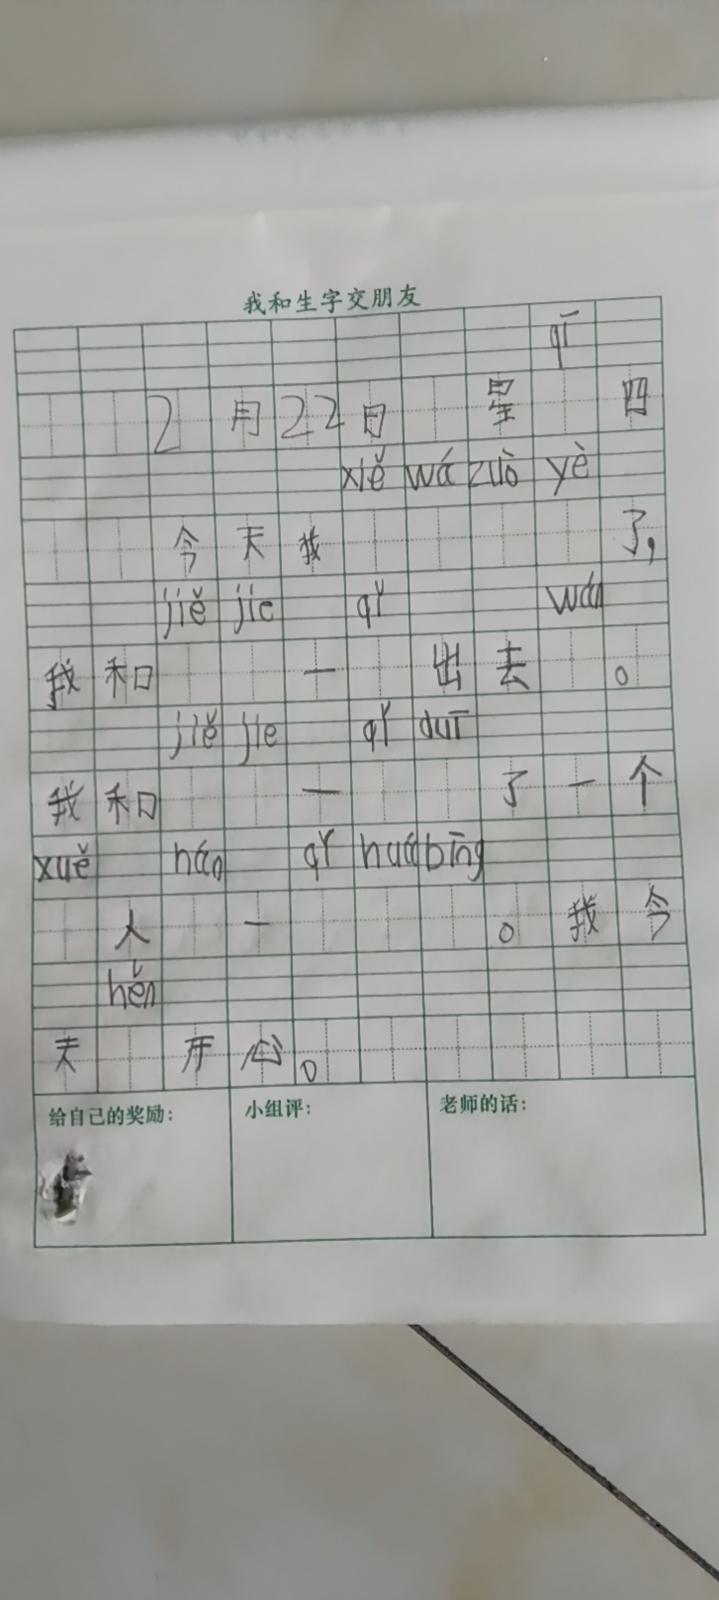 我和生字交朋友
qī
2月22日 星 四
xiě wá zuò yè
今天我 了,
jiě jie qǐ wán
我和 一 出去 。
jiě jie qǐ duī
我和 一 了一个
xuě hán qǐ huá bīng
人 一 。我今
hěn
天 开心。
给自己的奖励: 小组评: 老师的话: